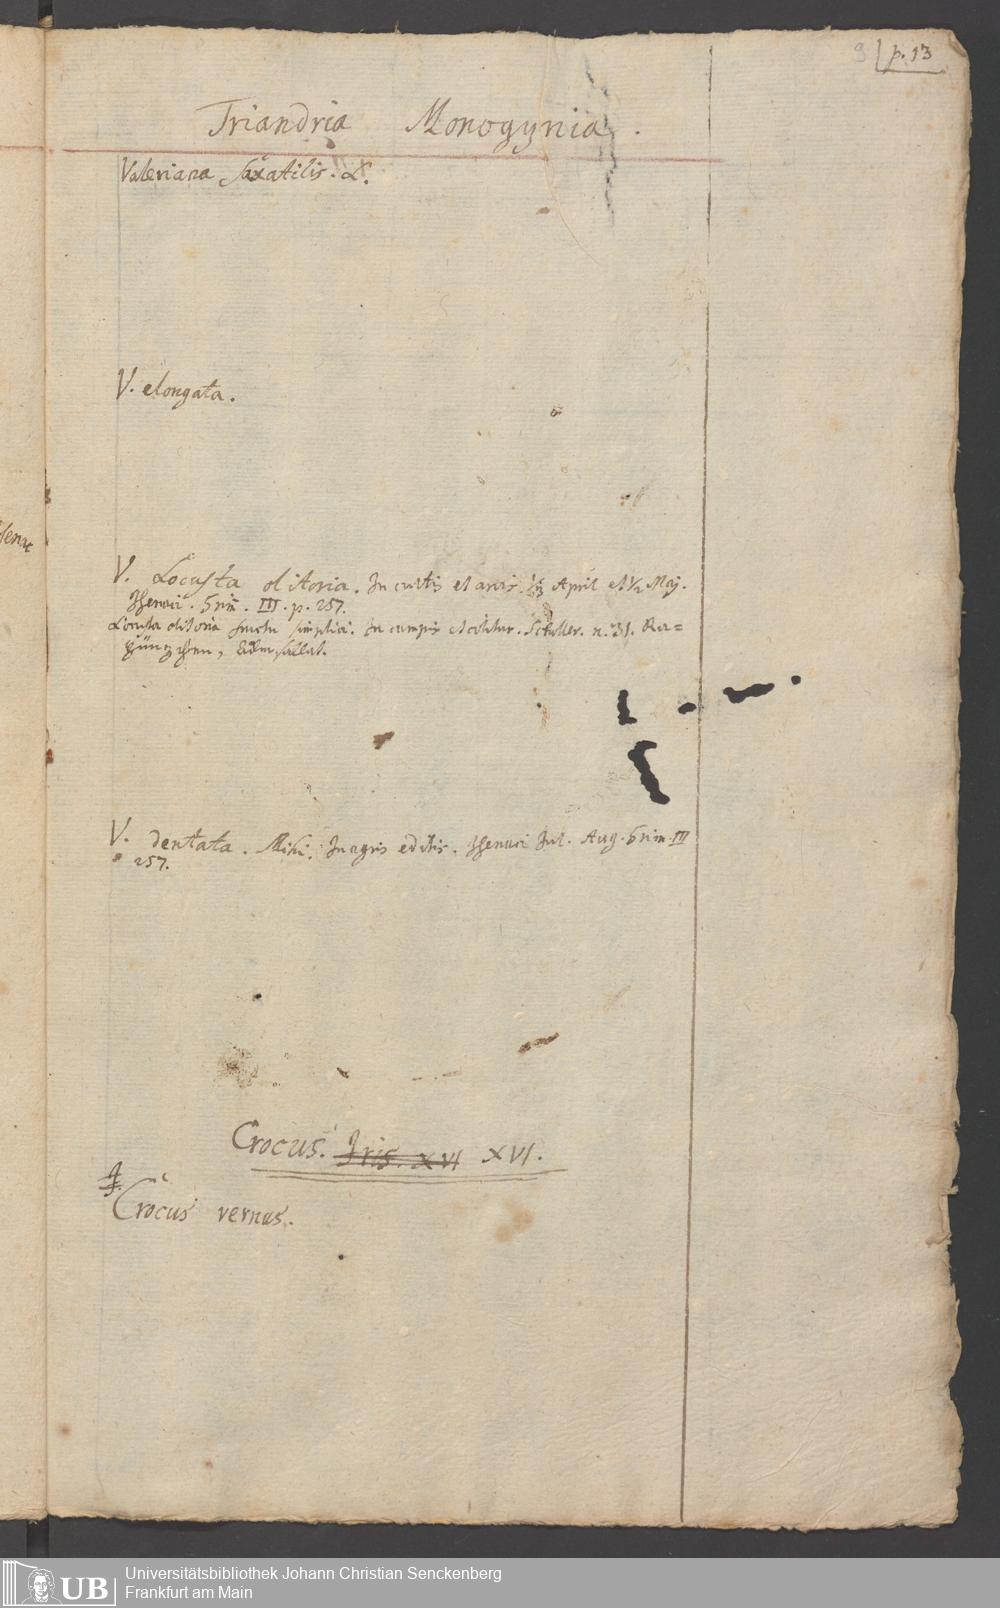 9 p. 13
Triandria Monogynia.
Valeriana saxatilis. L.
V. elongata.
V. Locusta olitoria. In cultis et arvis. April et Maj.
III. p. 257.
Locusta olitoria fructu simplici. In campis et colitur. Schuller. n. 31. Ra=
V. dentata. Mihi. In agris editis. Jul. Aug. III
257.
Crocus. Iris. XVI XVI.
Crocus vernus.
UB Universitätsbibliothek Johann Christian Senckenberg
Frankfurt am Main